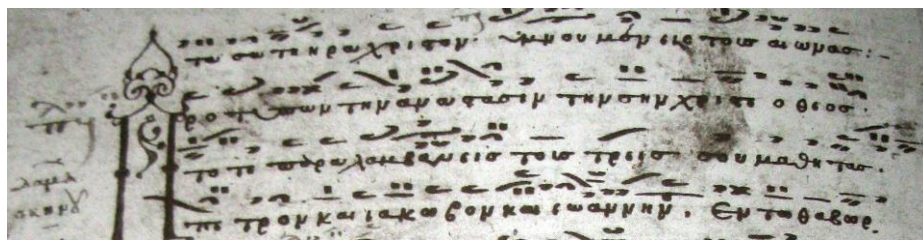 τα σα τεκρα χριστον. υμνουμεν εις τους αιωνας:
Προτυπων την αναστασιν την σην χριστε ο θεος.
τοτε παραλαμβανεις τους τρεις σου μαθητας.
πετρον και ιακωβον και ιωαννην. Εν τω θαβωρ